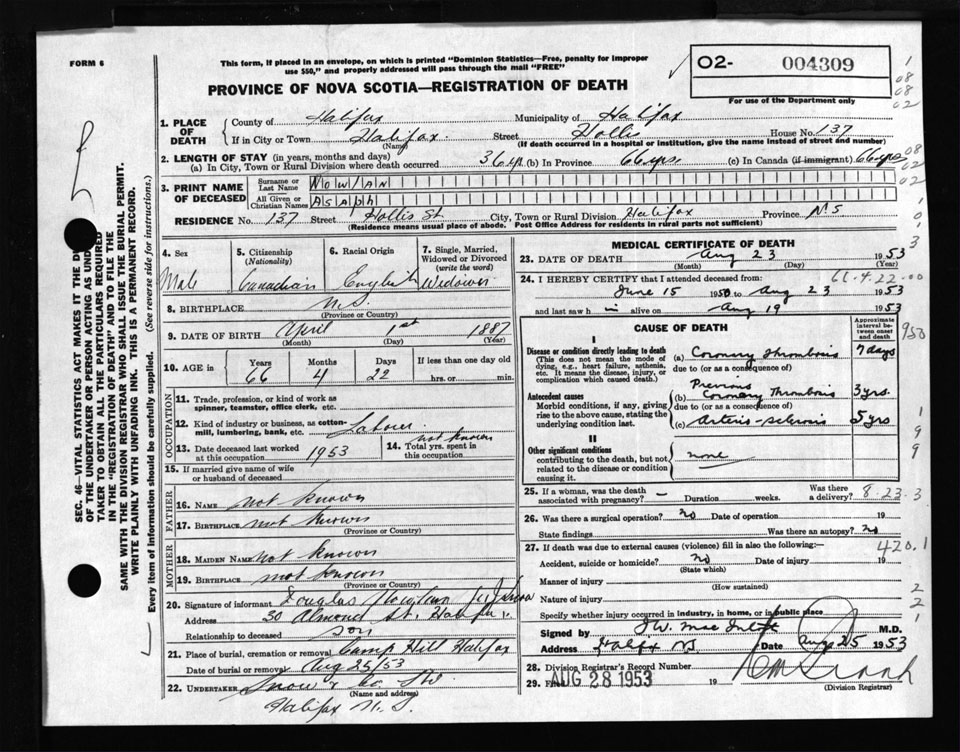 FORM 6
This form, if placed in an envelope, on which is printed "Dominion Statistics—Free, penalty for improper
use $50," and properly addressed will pass through the mail "FREE"
02- 004309
For use of the Department only
PROVINCE OF NOVA SCOTIA—REGISTRATION OF DEATH
1. PLACE OF DEATH
County of Halifax Municipality of Halifax
If in City or Town Halifax Street Hollis House No. 137
(Name) (If death occurred in a hospital or institution, give the name instead of street and number)
2. LENGTH OF STAY (in years, months and days)
(a) In City, Town or Rural Division where death occurred 36 yr (b) In Province 66 yrs. (c) In Canada (if immigrant) 66 yrs
3. PRINT NAME OF DECEASED
Surname or Last Name NOWLAN
All Given or Christian Names ASAPH
RESIDENCE No. 137 Street Hollis St City, Town or Rural Division Halifax Province N S
(Residence means usual place of abode. Post Office Address for residents in rural parts not sufficient)
4. Sex Male
5. Citizenship (Nationality) Canadian
6. Racial Origin English
7. Single, Married, Widowed or Divorced (write the word) Widower
8. BIRTHPLACE N.S.
(Province or Country)
9. DATE OF BIRTH April 1st 1887
(Month) (Day) (Year)
10. AGE in Years Months Days If less than one day old
66 4 22 hrs. or min.
OCCUPATION
11. Trade, profession, or kind of work as
spinner, teamster, office clerk, etc.
12. Kind of industry or business, as cotton-
mill, lumbering, bank, etc. Labour
13. Date deceased last worked
at this occupation 1953
14. Total yrs. spent in
this occupation not known
15. If married give name of wife
or husband of deceased
FATHER
16. NAME not known
17. BIRTHPLACE not known
(Province or Country)
MOTHER
18. MAIDEN NAME not known
19. BIRTHPLACE not known
(Province or Country)
20. Signature of informant Douglas
Address 30 Almond St. Halifax
Relationship to deceased son
21. Place of burial, cremation or removal Camp Hill Halifax
Date of burial or removal Aug 25/53
22. UNDERTAKER Snow & Co Ltd
(Name and address)
Halifax N.S.
MEDICAL CERTIFICATE OF DEATH
23. DATE OF DEATH Aug 23 1953
(Month) (Day) (Year)
24. I HEREBY CERTIFY that I attended deceased from: 66.4.22.00
June 15 1950 to Aug 23 1953
and last saw h im alive on Aug 19 1953
CAUSE OF DEATH
Approximate interval between onset and death
I
Disease or condition directly leading to death
(This does not mean the mode of
dying, e.g., heart failure, asthenia,
etc. It means the disease, injury, or
complication which caused death.)
(a) Coronary Thrombosis 7 days
due to (or as a consequence of)
Antecedent causes
Morbid conditions, if any, giving
rise to the above cause, stating the
underlying condition last.
(b) Previous Coronary Thrombosis 3 yrs.
due to (or as a consequence of)
(c) Arterio-sclerosis 5 yrs
II
Other significant conditions
contributing to the death, but not
related to the disease or condition
causing it.
none
25. If a woman, was the death
associated with pregnancy? — Duration weeks. Was there
a delivery? 8-23-3
26. Was there a surgical operation? no Date of operation 19
State findings Was there an autopsy? no
27. If death was due to external causes (violence) fill in also the following:— 420.1
Accident, suicide or homicide? no Date of injury 19
(State which)
Manner of injury
(How sustained)
Nature of injury
Specify whether injury occurred in industry, in home, or in public place
Signed by M.D.
Address Halifax NS Date Aug 25 1953
28. Division Registrar's Record Number
29. Filed AUG 28 1953 19
(Division Registrar)
SEC. 46—VITAL STATISTICS ACT MAKES IT THE
OF THE UNDERTAKER OR PERSON ACTING AS
TAKER TO OBTAIN ALL THE PARTICULARS REQUIRED
IN THE "REGISTRATION OF DEATH" AND TO FILE THE
SAME WITH THE DIVISION REGISTRAR WHO SHALL ISSUE THE BURIAL PERMIT.
WRITE PLAINLY WITH UNFADING INK. THIS IS A PERMANENT RECORD.
Every item of information should be carefully supplied. (See reverse side for instructions.)